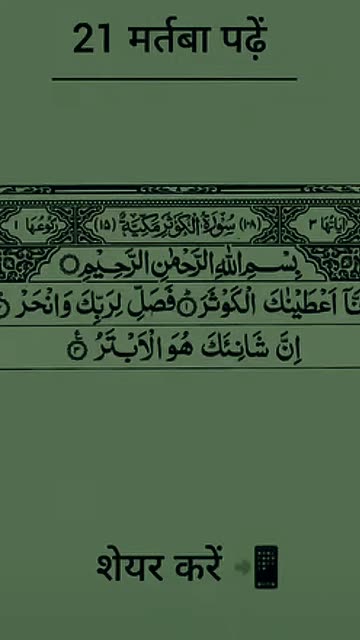 21 मर्तबा पढ़ें
اٰيَاتُهَا ٣ (١٠٨) سُوْرَةُ الْكَوْثَرِ مَكِّيَّةٌ (١٥) رُكُوْعُهَا ١
بِسْمِ اللهِ الرَّحْمٰنِ الرَّحِيْمِ
اَعْطَيْنٰكَ الْكَوْثَرَ ۝١ فَصَلِّ لِرَبِّكَ وَانْحَرْ ۝
اِنَّ شَانِئَكَ هُوَ الْاَبْتَرُ ۝٣
शेयर करें